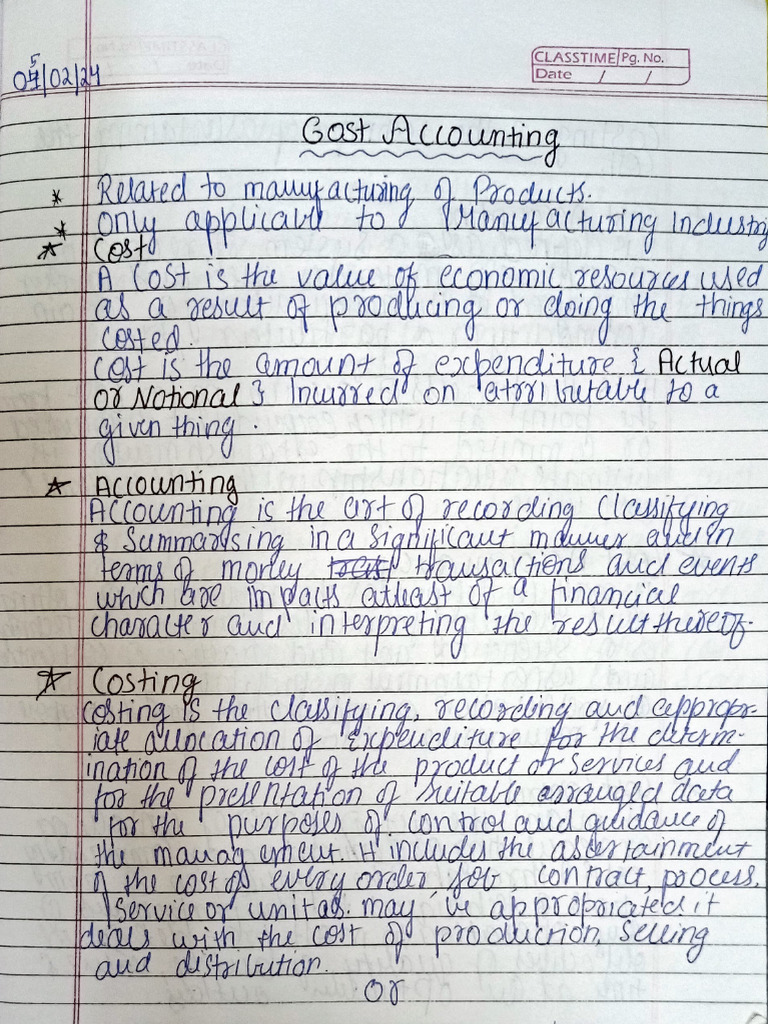 CLASSTIME Pg. No.
Date / /
05/02/24
Cost Accounting
* Related to manufacturing of Products.
* Only applicabl to Manufacturing Industry
* Cost
A Cost is the value of economic resources used
as a result of producing or doing the things
costed.
Cost is the amount of expenditure { Actual
Or Notional } Incurred on atrributable to a
given thing.
* Accounting
Accounting is the art of recording Classifying
& Summarising in a Significant manner and in
terms of money transactions and events
which are impacts atleast of a financial
character and interpreting the result thereof.
* Costing
Costing is the classifying, recording and appropr-
iate allocation of Expenditure for the determ-
ination of the cost of the product or services and
for the presentation of suitable arranged data
for the purposes of control and guidance of
the management. It includes the ascertainment
of the cost of every order, job contract, process,
Service or unit as may be appropriated it
deals with the cost of production, Selling
and distribution.
Or